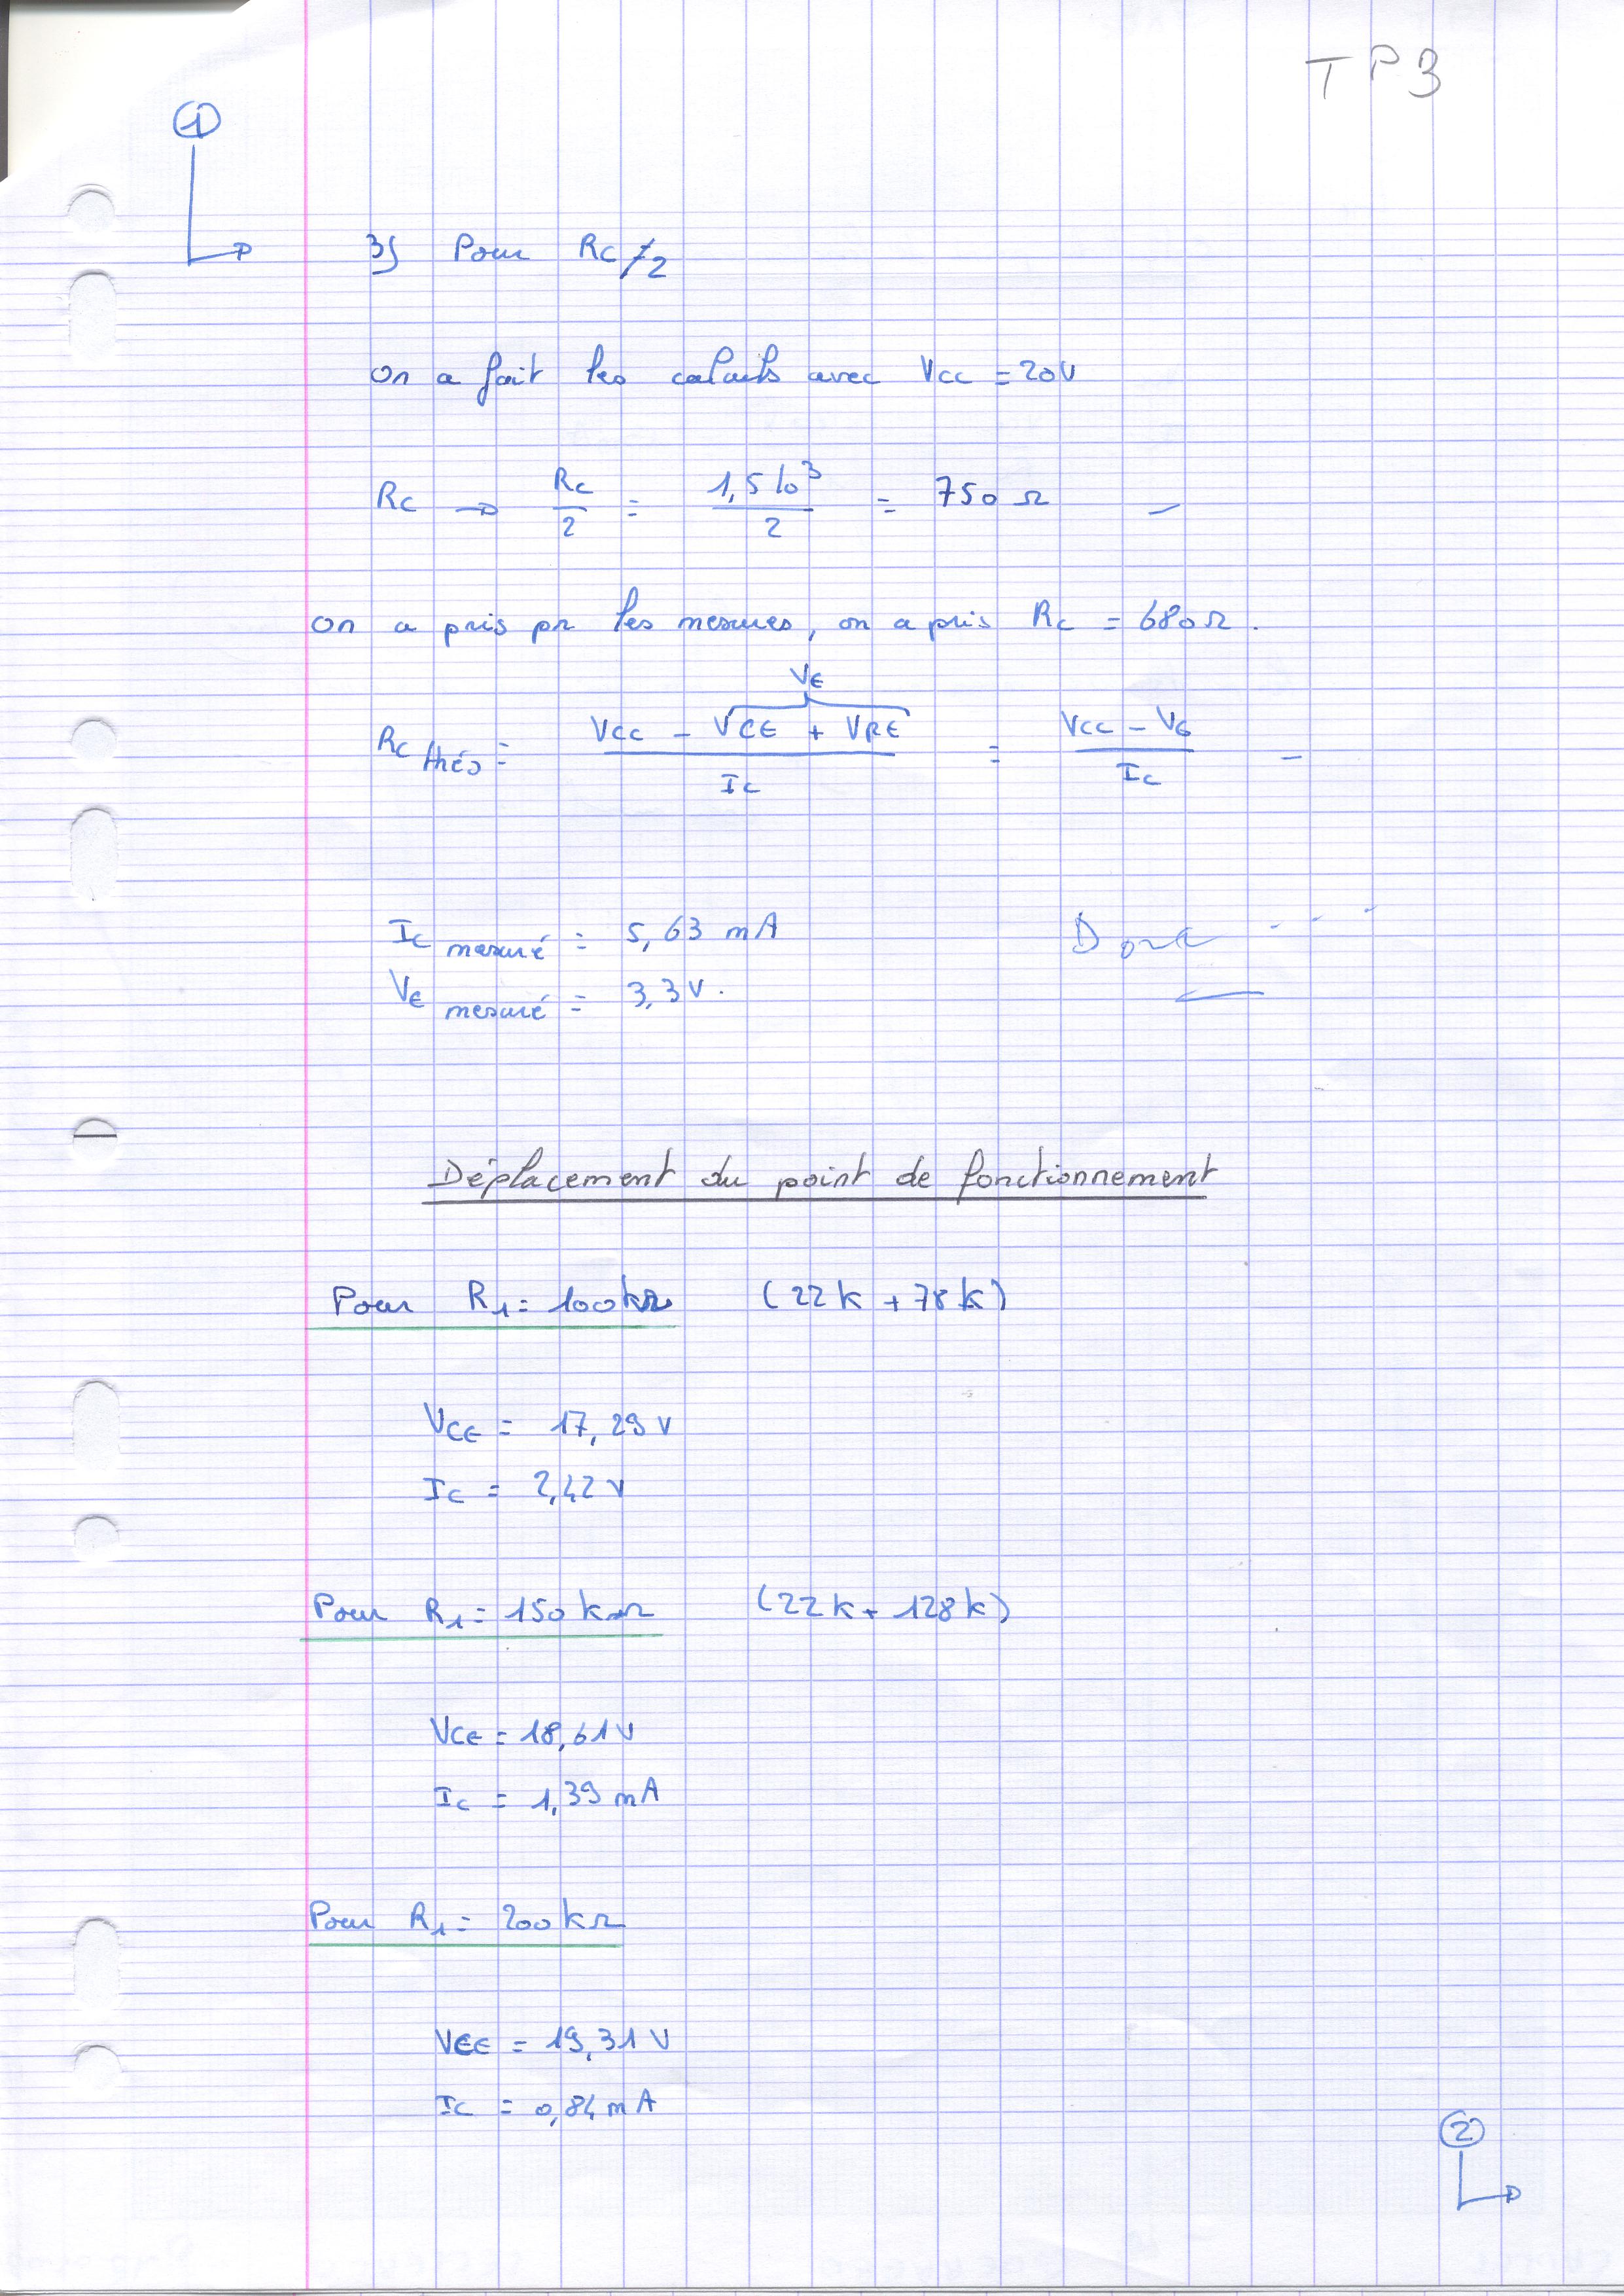 TP3
①
3) Pour Rc/2
on a fait les calculs avec Vcc = 20V
Rc → Rc/2 = 1,5 10³/2 = 750 Ω
on a pris pr les mesures, on a pris Rc = 680Ω.
VE
Rc théo = (Vcc - VCE + VRE)/Ic = (Vcc - VE)/Ic
Ic mesuré = 5,63 mA Donc
VE mesuré = 3,3V.
Déplacement du point de fonctionnement
Pour R1 = 100kΩ (22k + 78k)
VCE = 17,29 V
Ic = 2,42 V
Pour R1 = 150kΩ (22k + 128k)
VCE = 18,61V
Ic = 1,39 mA
Pour R1 = 200kΩ
VCE = 19,31 V
Ic = 0,84 mA
②